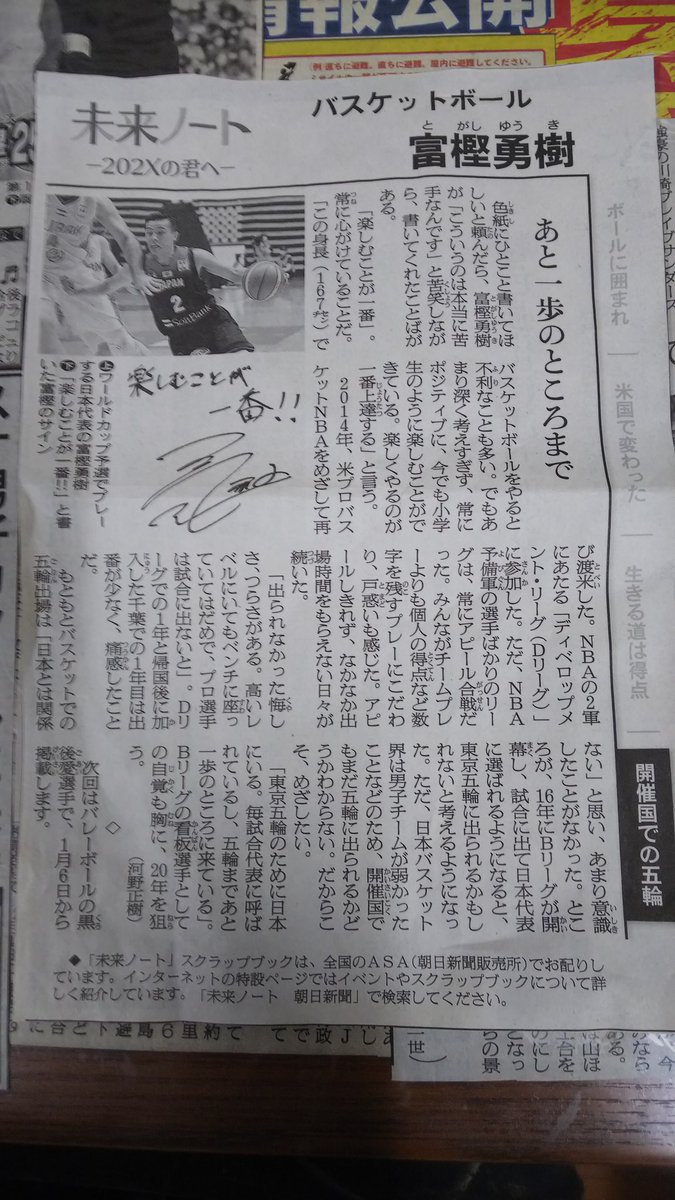 情報公開
例:直ちに避難。直ちに避難。屋内に避難してください。
未来ノート
-202Xの君へ-
バスケットボール
とがし ゆうき
富樫勇樹
ボールに囲まれ
米国で変わった
生きる道は得点
開催国での五輪
あと一歩のところまで
色紙にひとこと書いてほ
しいと頼んだら、富樫勇樹
が「こういうのは本当に苦
手なんです」と苦笑しなが
ら、書いてくれたことばが
ある。
「楽しむことが一番」。
常に心がけていることだ。
「この身長(167㌢)で
バスケットボールをやると
不利なことも多い。でもあ
まり深く考えすぎず、常に
ポジティブに、今でも小学
生のように楽しむことがで
きている。楽しくやるのが
一番上達する」と言う。
2014年、米プロバス
ケットNBAをめざして再
び渡米した。NBAの2軍
にあたる「ディベロップメ
ント・リーグ(Dリーグ)」
に参加した。ただ、NBA
予備軍の選手ばかりのリー
グは、常にアピール合戦だ
った。みんながチームプレ
ーよりも個人の得点など数
字を残すプレーにこだわ
り、戸惑いも感じた。アピ
ールしきれず、なかなか出
場時間をもらえない日々が
続いた。
「出られなかった悔し
さ、つらさがある。高いレ
ベルにいてもベンチに座っ
ていてはだめで、プロ選手
は試合に出ないと」。Dリ
ーグでの1年と帰国後に加
入した千葉での1年目は出
番が少なく、痛感したこと
だ。
もともとバスケットでの
五輪出場は「日本とは関係
ない」と思い、あまり意識
したことがなかった。とこ
ろが、16年にBリーグが開
幕し、試合に出て日本代表
に選ばれるようになると、
東京五輪に出られるかもし
れないと考えるようになっ
た。ただ、日本バスケット
界は男子チームが弱かった
ことなどのため、開催国で
もまだ五輪に出られるかど
うかわからない。だからこ
そ、めざしたい。
「東京五輪のために日本
にいる。毎試合代表に呼ば
れているし、五輪まであと
一歩のところに来ている」。
Bリーグの看板選手として
の自覚も胸に、20年を狙
う。
(河野正樹)
◇
次回はバレーボールの黒
後愛選手で、1月6日から
掲載します。
JAPAN
2
SoftBank
楽しむことが
一番!!
㊤ワールドカップ予選でプレー
する日本代表の富樫勇樹
㊦「楽しむことが一番!!」と書
いた富樫のサイン
◆「未来ノート」スクラップブックは、全国のASA(朝日新聞販売所)でお配りし
ています。インターネットの特設ページではイベントやスクラップブックについて詳
しく紹介しています。「未来ノート 朝日新聞」で検索してください。